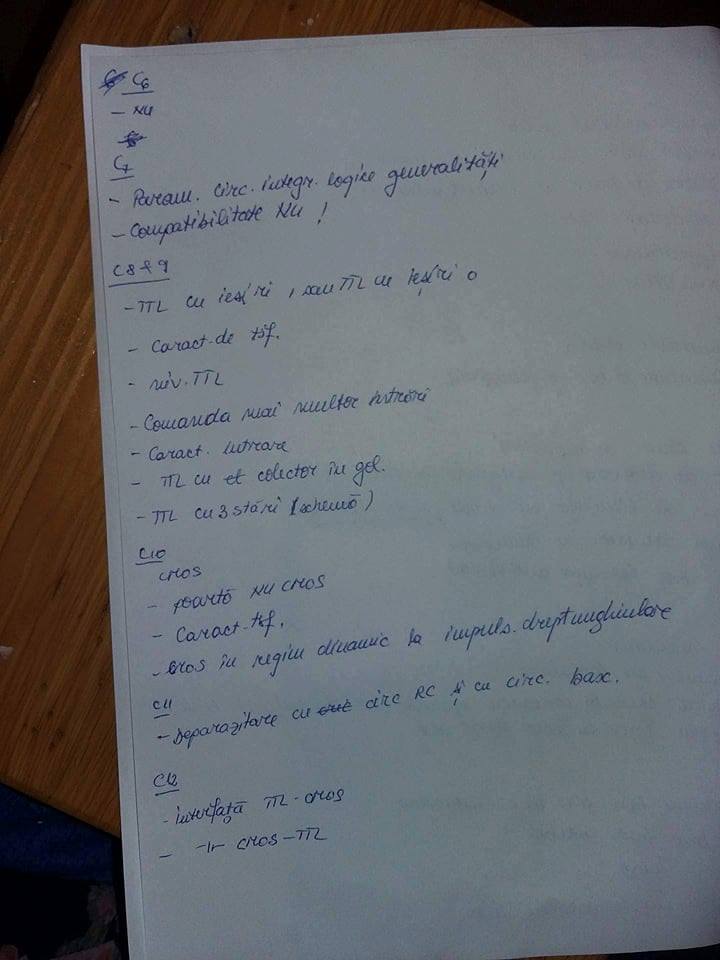 C6
- NU
C7
- Param. circ. integr. logice generalități
- Compatibilitate NU !
C8 & 9
- TTL cu ieșiri 1, sau TTL cu ieșiri 0
- Caract. de tsf.
- niv. TTL
- Comanda mai multor intrări
- Caract. intrare
- TTL cu et colector în gol.
- TTL cu 3 stări (schemă)
C10
CMOS
- poartă NU CMOS
- Caract. tsf.
- CMOS în regim dinamic la impuls. dreptunghiulare
C11
- Deparazitare cu circ RC și cu circ. bax.
C12
- interfață TTL - CMOS
- -11- CMOS - TTL